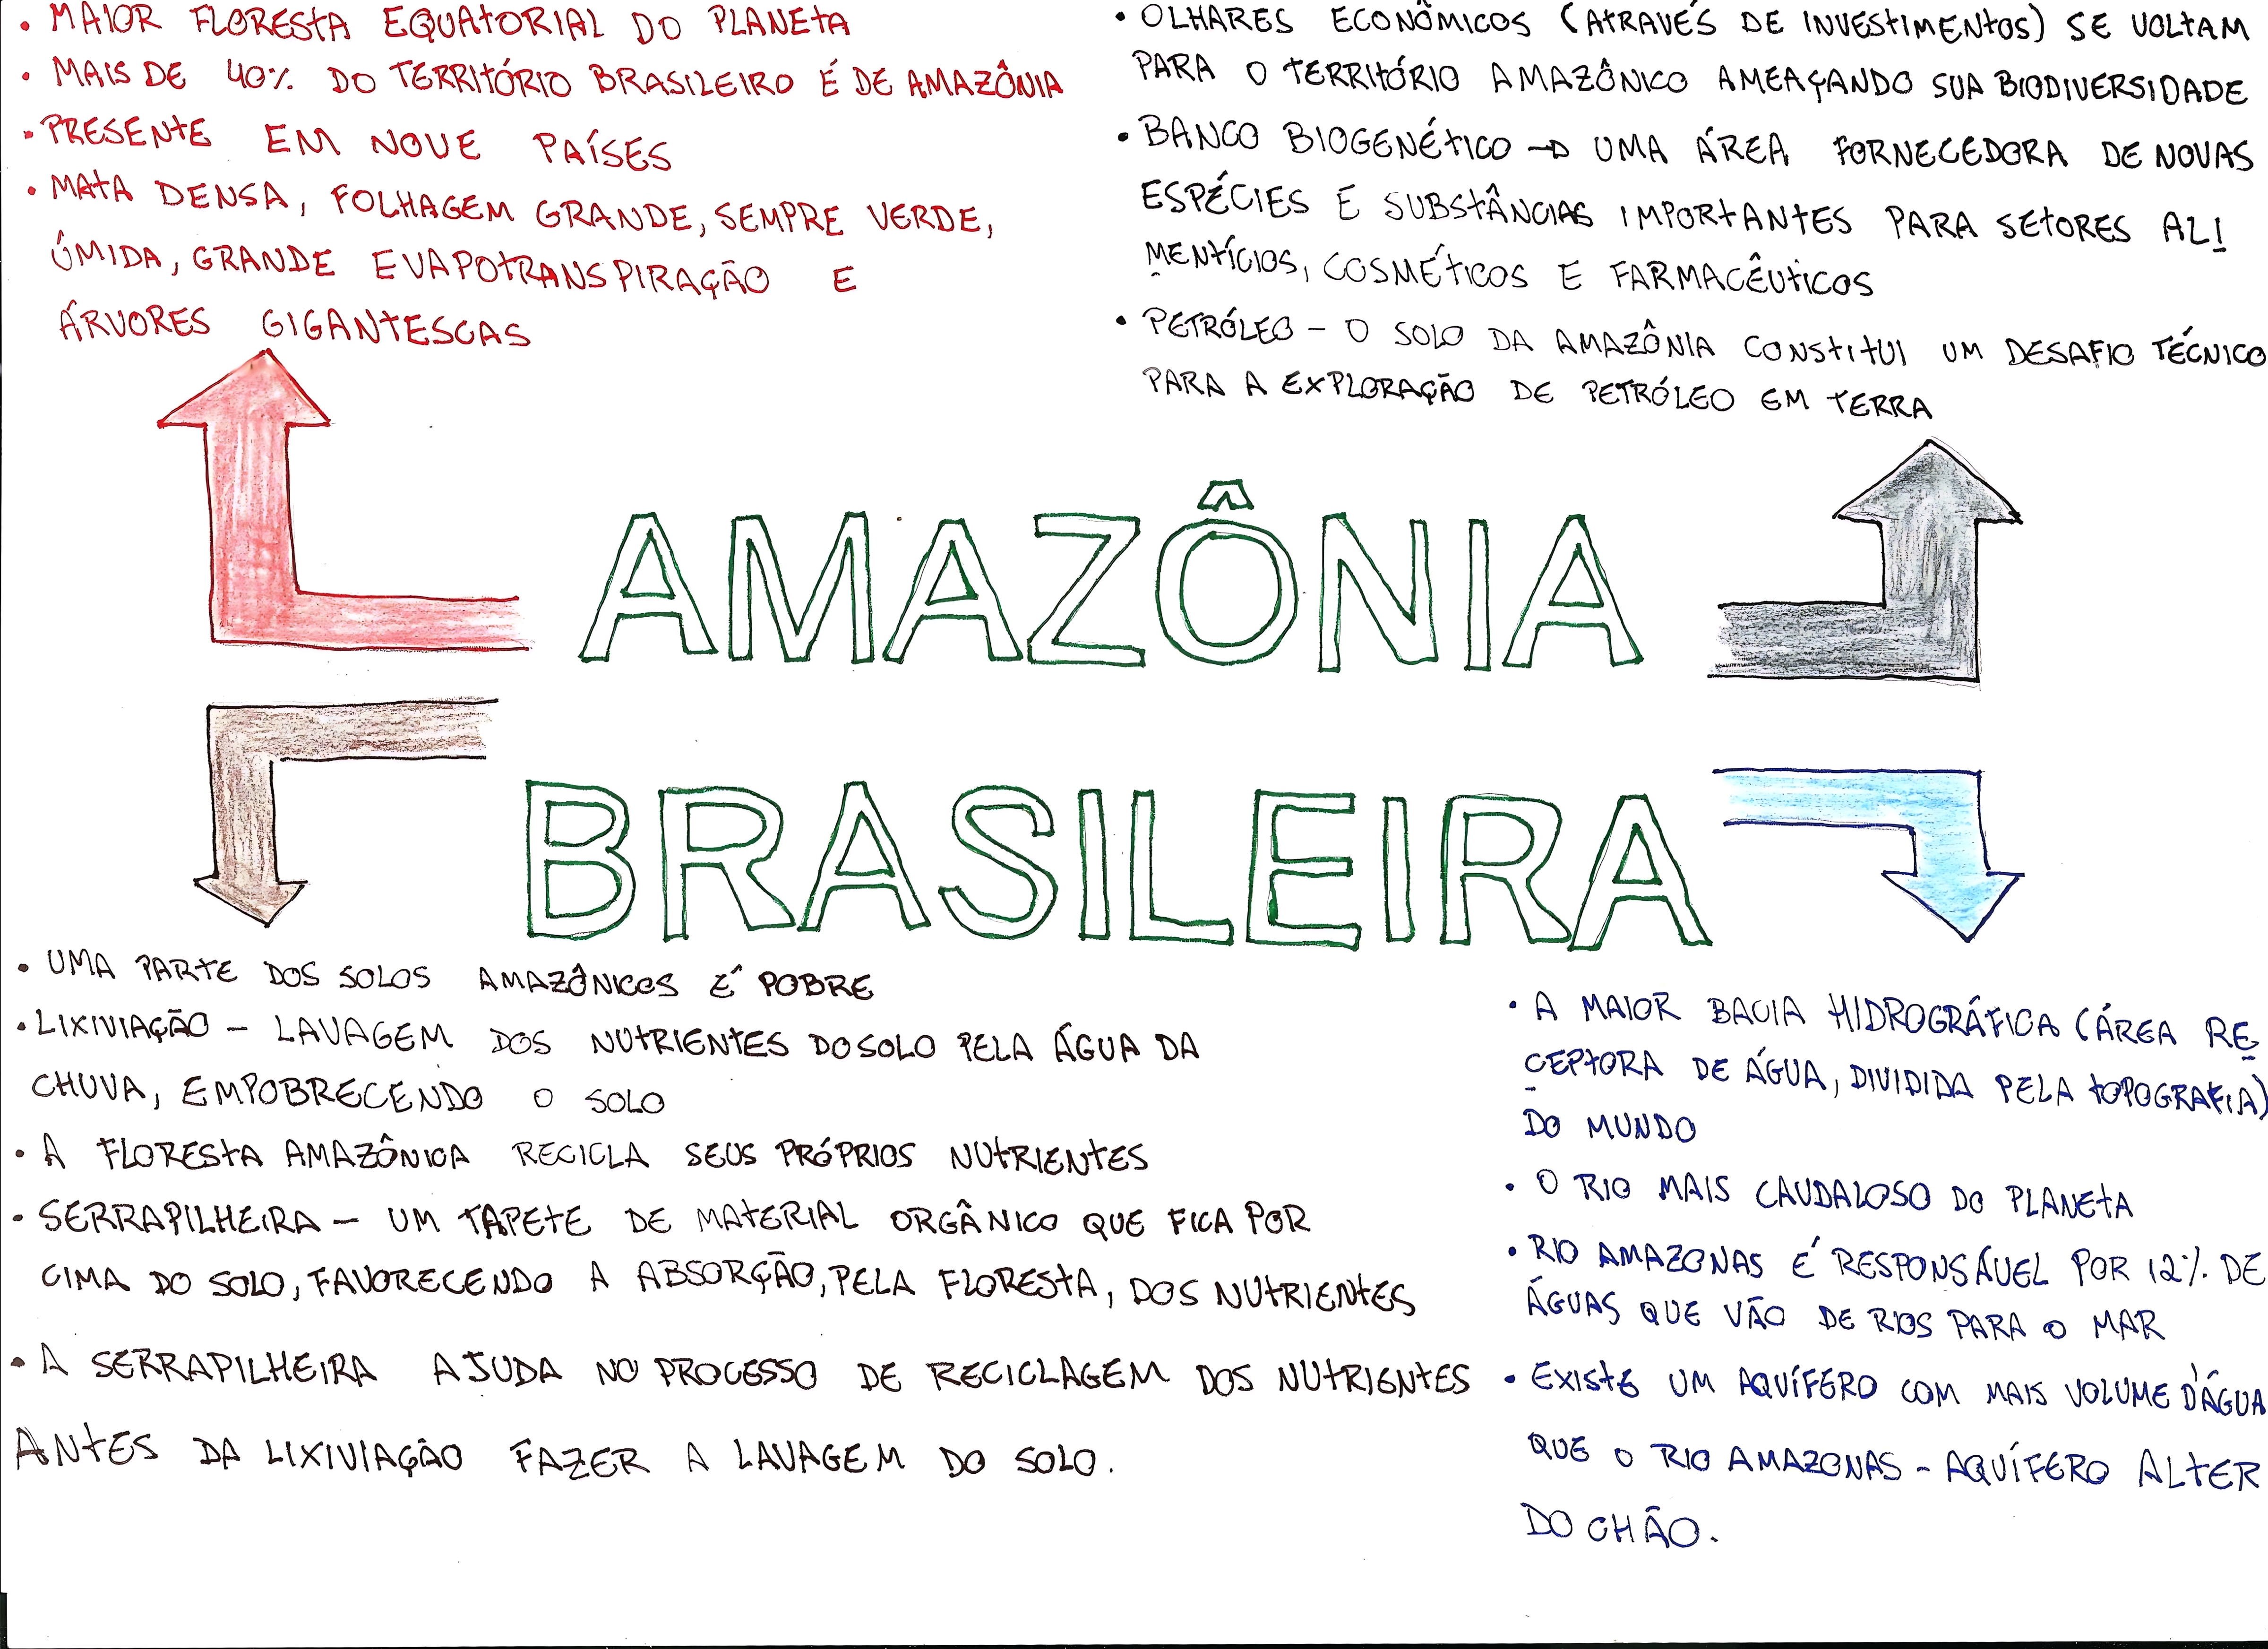 • MAIOR FLORESTA EQUATORIAL DO PLANETA
• MAIS DE 40% DO TERRITÓRIO BRASILEIRO É DE AMAZÔNIA
• PRESENTE EM NOVE PAÍSES
• MATA DENSA, FOLHAGEM GRANDE, SEMPRE VERDE,
ÚMIDA, GRANDE EVAPOTRANSPIRAÇÃO E
ÁRVORES GIGANTESCAS
• OLHARES ECONÔMICOS (ATRAVÉS DE INVESTIMENTOS) SE VOLTAM
PARA O TERRITÓRIO AMAZÔNICO AMEAÇANDO SUA BIODIVERSIDADE
• BANCO BIOGENÉTICO → UMA ÁREA FORNECEDORA DE NOVAS
ESPÉCIES E SUBSTÂNCIAS IMPORTANTES PARA SETORES ALI
MENTÍCIOS, COSMÉTICOS E FARMACÊUTICOS
• PETRÓLEO - O SOLO DA AMAZÔNIA CONSTITUI UM DESAFIO TÉCNICO
PARA A EXPLORAÇÃO DE PETRÓLEO EM TERRA
AMAZÔNIA
BRASILEIRA
• UMA PARTE DOS SOLOS AMAZÔNICOS É POBRE
• LIXIVIAÇÃO - LAVAGEM DOS NUTRIENTES DO SOLO PELA ÁGUA DA
CHUVA, EMPOBRECENDO O SOLO
• A FLORESTA AMAZÔNICA RECICLA SEUS PRÓPRIOS NUTRIENTES
• SERRAPILHEIRA - UM TAPETE DE MATERIAL ORGÂNICO QUE FICA POR
CIMA DO SOLO, FAVORECENDO A ABSORÇÃO, PELA FLORESTA, DOS NUTRIENTES
• A SERRAPILHEIRA AJUDA NO PROCESSO DE RECICLAGEM DOS NUTRIENTES
ANTES DA LIXIVIAÇÃO FAZER A LAVAGEM DO SOLO.
• A MAIOR BACIA HIDROGRÁFICA (ÁREA RE
CEPTORA DE ÁGUA, DIVIDIDA PELA TOPOGRAFIA)
DO MUNDO
• O RIO MAIS CAUDALOSO DO PLANETA
• RIO AMAZONAS É RESPONSÁVEL POR 12% DE
ÁGUAS QUE VÃO DE RIOS PARA O MAR
• EXISTE UM AQUÍFERO COM MAIS VOLUME D'ÁGUA
QUE O RIO AMAZONAS - AQUÍFERO ALTER
DO CHÃO.